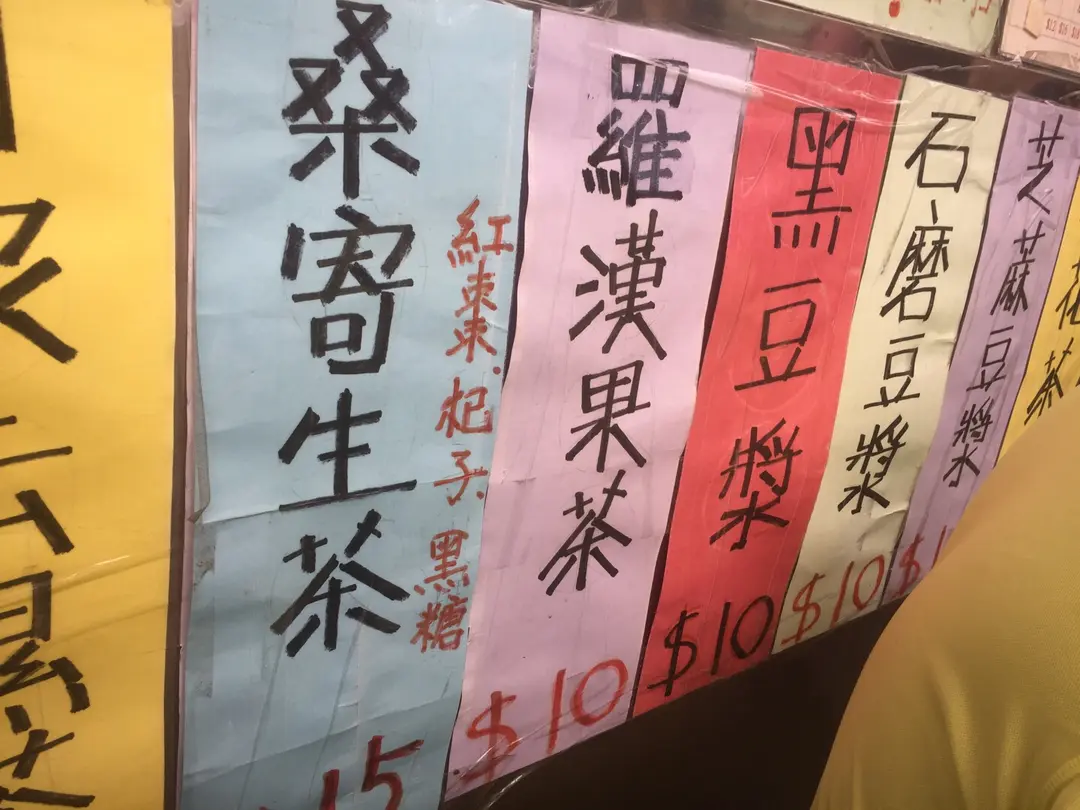 桑寄生茶
紅棗.杞子.黑糖
15
羅漢果茶
$10
黑豆漿
$10
石磨豆漿
$10
芝麻豆漿
$1
花茶